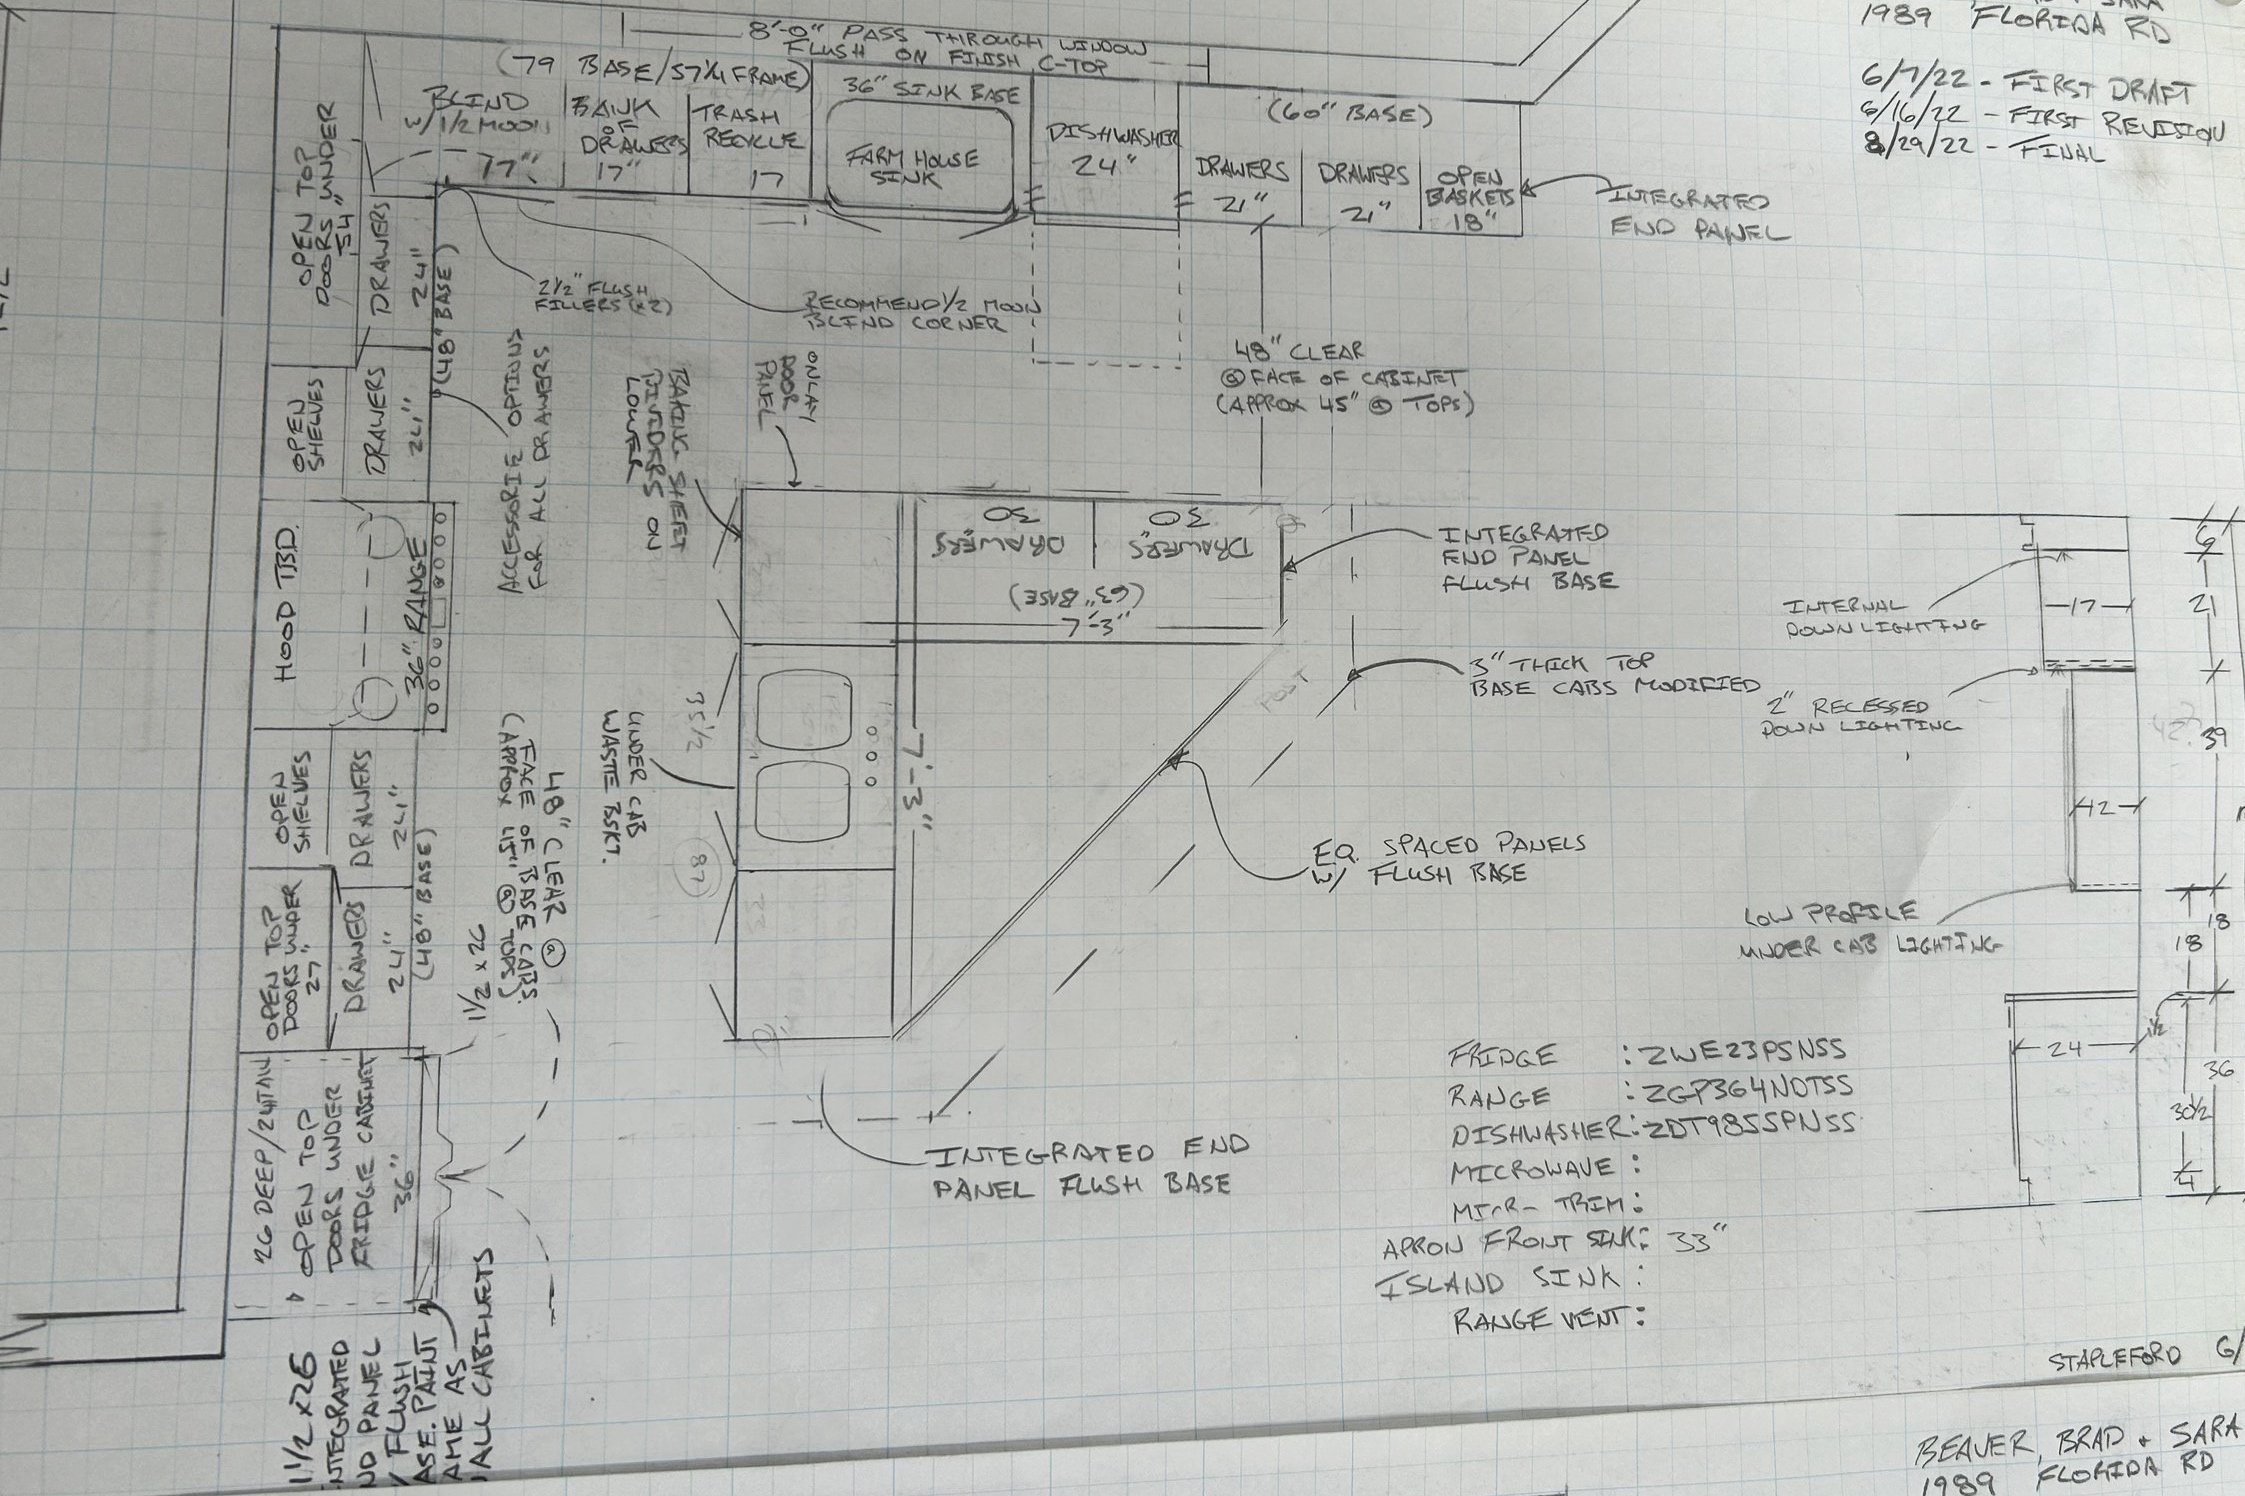 1989 FLORIDA RD
6/7/22 - FIRST DRAFT
6/16/22 - FIRST REVISION
8/29/22 - FINAL
8'-0" PASS THROUGH WINDOW
FLUSH ON FINISH C-TOP
(79 BASE/57¼ FRAME)
BLIND
W/ 1/2 MOON
BANK
OF
DRAWERS
17"
TRASH
RECYCLE
17
36" SINK BASE
FARM HOUSE
SINK
DISHWASHER
24"
(60" BASE)
DRAWERS
21"
DRAWERS
21"
OPEN
BASKETS
18"
INTEGRATED
END PANEL
OPEN TOP
DOORS UNDER
54"
DRAWERS
24"
(48" BASE)
2½" FLUSH
FILLERS (x2)
RECOMMEND 1/2 MOON
BLIND CORNER
ACCESSORIE OPTIONS
FOR ALL DRAWERS
BAKING SHEET
DIVIDERS ON
LOWER
ONLAY
DOOR
PANEL
48" CLEAR
@ FACE OF CABINET
(APPROX 45" @ TOPS)
OPEN
SHELVES
DRAWERS
24"
HOOD TBD.
36" RANGE
30
DRAWERS
30
DRAWERS
(63" BASE)
7'-3"
INTEGRATED
END PANEL
FLUSH BASE
POST
3" THICK TOP
BASE CABS MODIFIED
7'-3"
35 1/2
87
UNDER CAB
WASTE BSKT.
EQ. SPACED PANELS
W/ FLUSH BASE
OPEN
SHELVES
DRAWERS
24"
(48" BASE)
OPEN TOP
DOORS UNDER
27"
DRAWERS
24"
48" CLEAR @
FACE OF BASE CABS.
(APPROX 45" @ TOPS)
1½ x 26
26 DEEP/24 TALL
OPEN TOP
DOORS UNDER
FRIDGE CABINET
36"
INTEGRATED END
PANEL FLUSH BASE
1½ x 26
NTEGRATED
ND PANEL
/ FLUSH
ASE. PAINT
AME AS
ALL CABINETS
INTERNAL
DOWN LIGHTING
2" RECESSED
DOWN LIGHTING
LOW PROFILE
UNDER CAB LIGHTING
6
17
21
39
12
18
18
1½
24
36
30½
4
FRIDGE : ZWE23PSNSS
RANGE : ZGP364NDTSS
DISHWASHER: ZDT985SPNSS
MICROWAVE :
MICR- TRIM :
APRON FRONT SINK: 33"
ISLAND SINK :
RANGE VENT :
STAPLEFORD 6/
BEAVER, BRAD + SARA
1989 FLORIDA RD